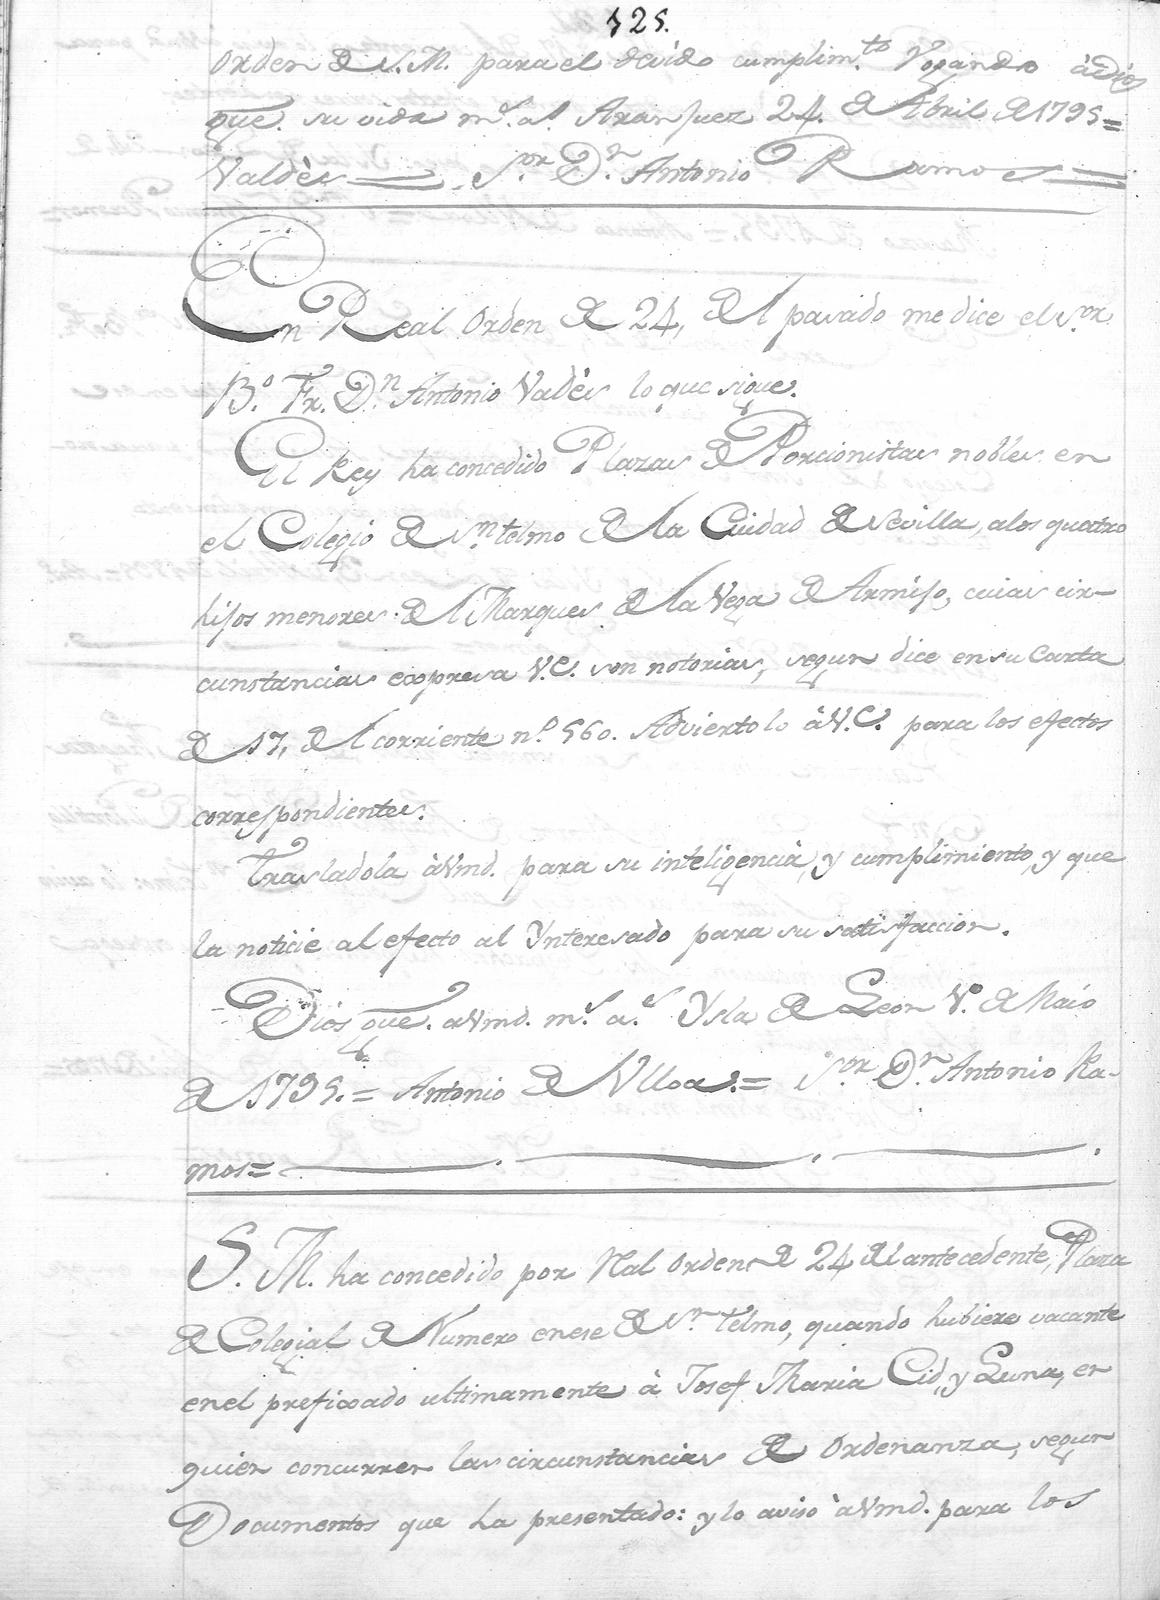 125.
Orden de S.M. para el devido cumplim.to Rogando à Dios
gue. su vida m.s a.s Aranjuez 24. de Abril de 1795=
Valdès= S.or D.n Antonio Ramos=
En Real Orden de 24, del pasado me dice el S.or
B.o Fr. D.n Antonio Valdès lo que sigue.
El Rey ha concedido Plazas de Porcionistas nobles en
el Colegio de S.n telmo de la Ciudad de Sevilla, alos quatro
hijos menores del Marques de la Vega de Armijo, cuias cir-
cunstancias expresa V.E. son notorias, segun dice en su Carta
de 17, del corriente n.o 560. Adviertolo à V.E. para los efectos
correspondientes.
Trasladola à Vmd. para su inteligencia, y cumplimiento, y que
la noticie al efecto al Ynteresado para su satisfaccion.
Dios gue. a Vmd. m.s a.s Ysla de Leon 1.o de Maio
de 1795.= Antonio de Ulloa.= S.or D.n Antonio Ra-
mos=
S. M. ha concedido por Rral Orden de 24 del antecedente, Plaza
de Colegial de Numero en ese de S.n Telmo, quando hubiere vacante
en el prefixado ultimamente à Josef Maria Cid, y Luna, en
quien concurren las circunstancias de Ordenanza, segun
Documentos que ha presentado: y lo aviso à Vmd. para los